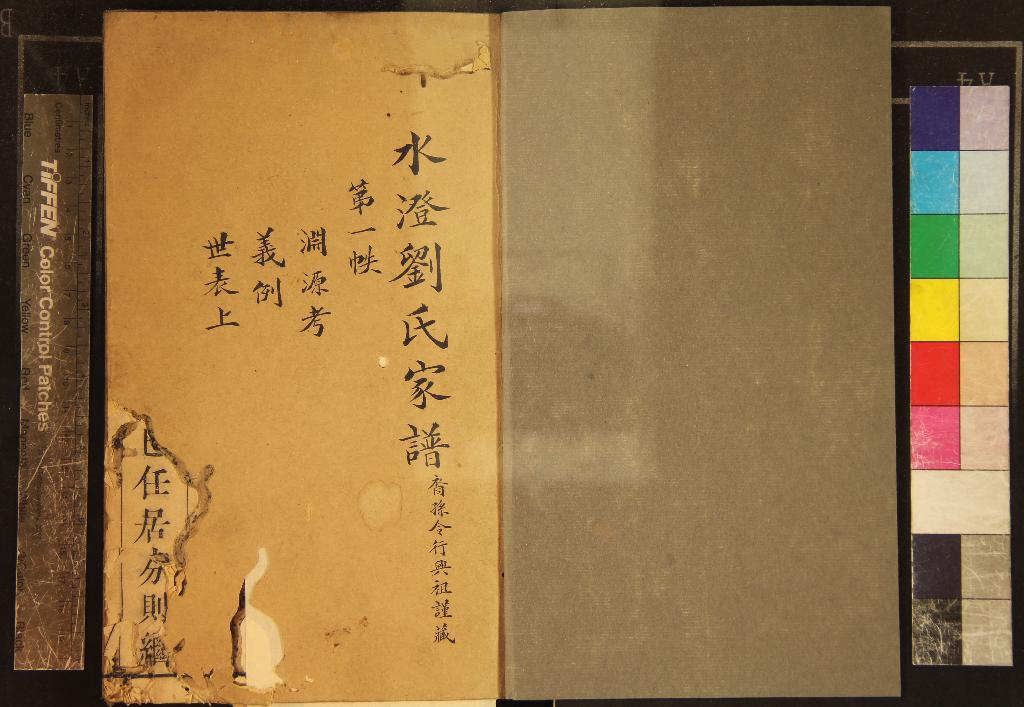 水澄劉氏家譜
裔孫令行興祖謹藏
第一帙
淵源考
義例
世表上
任居
則
TIFFEN Color Control Patches
Centimetres
Blue
Cyan
Green
Yellow
A4
A4
B